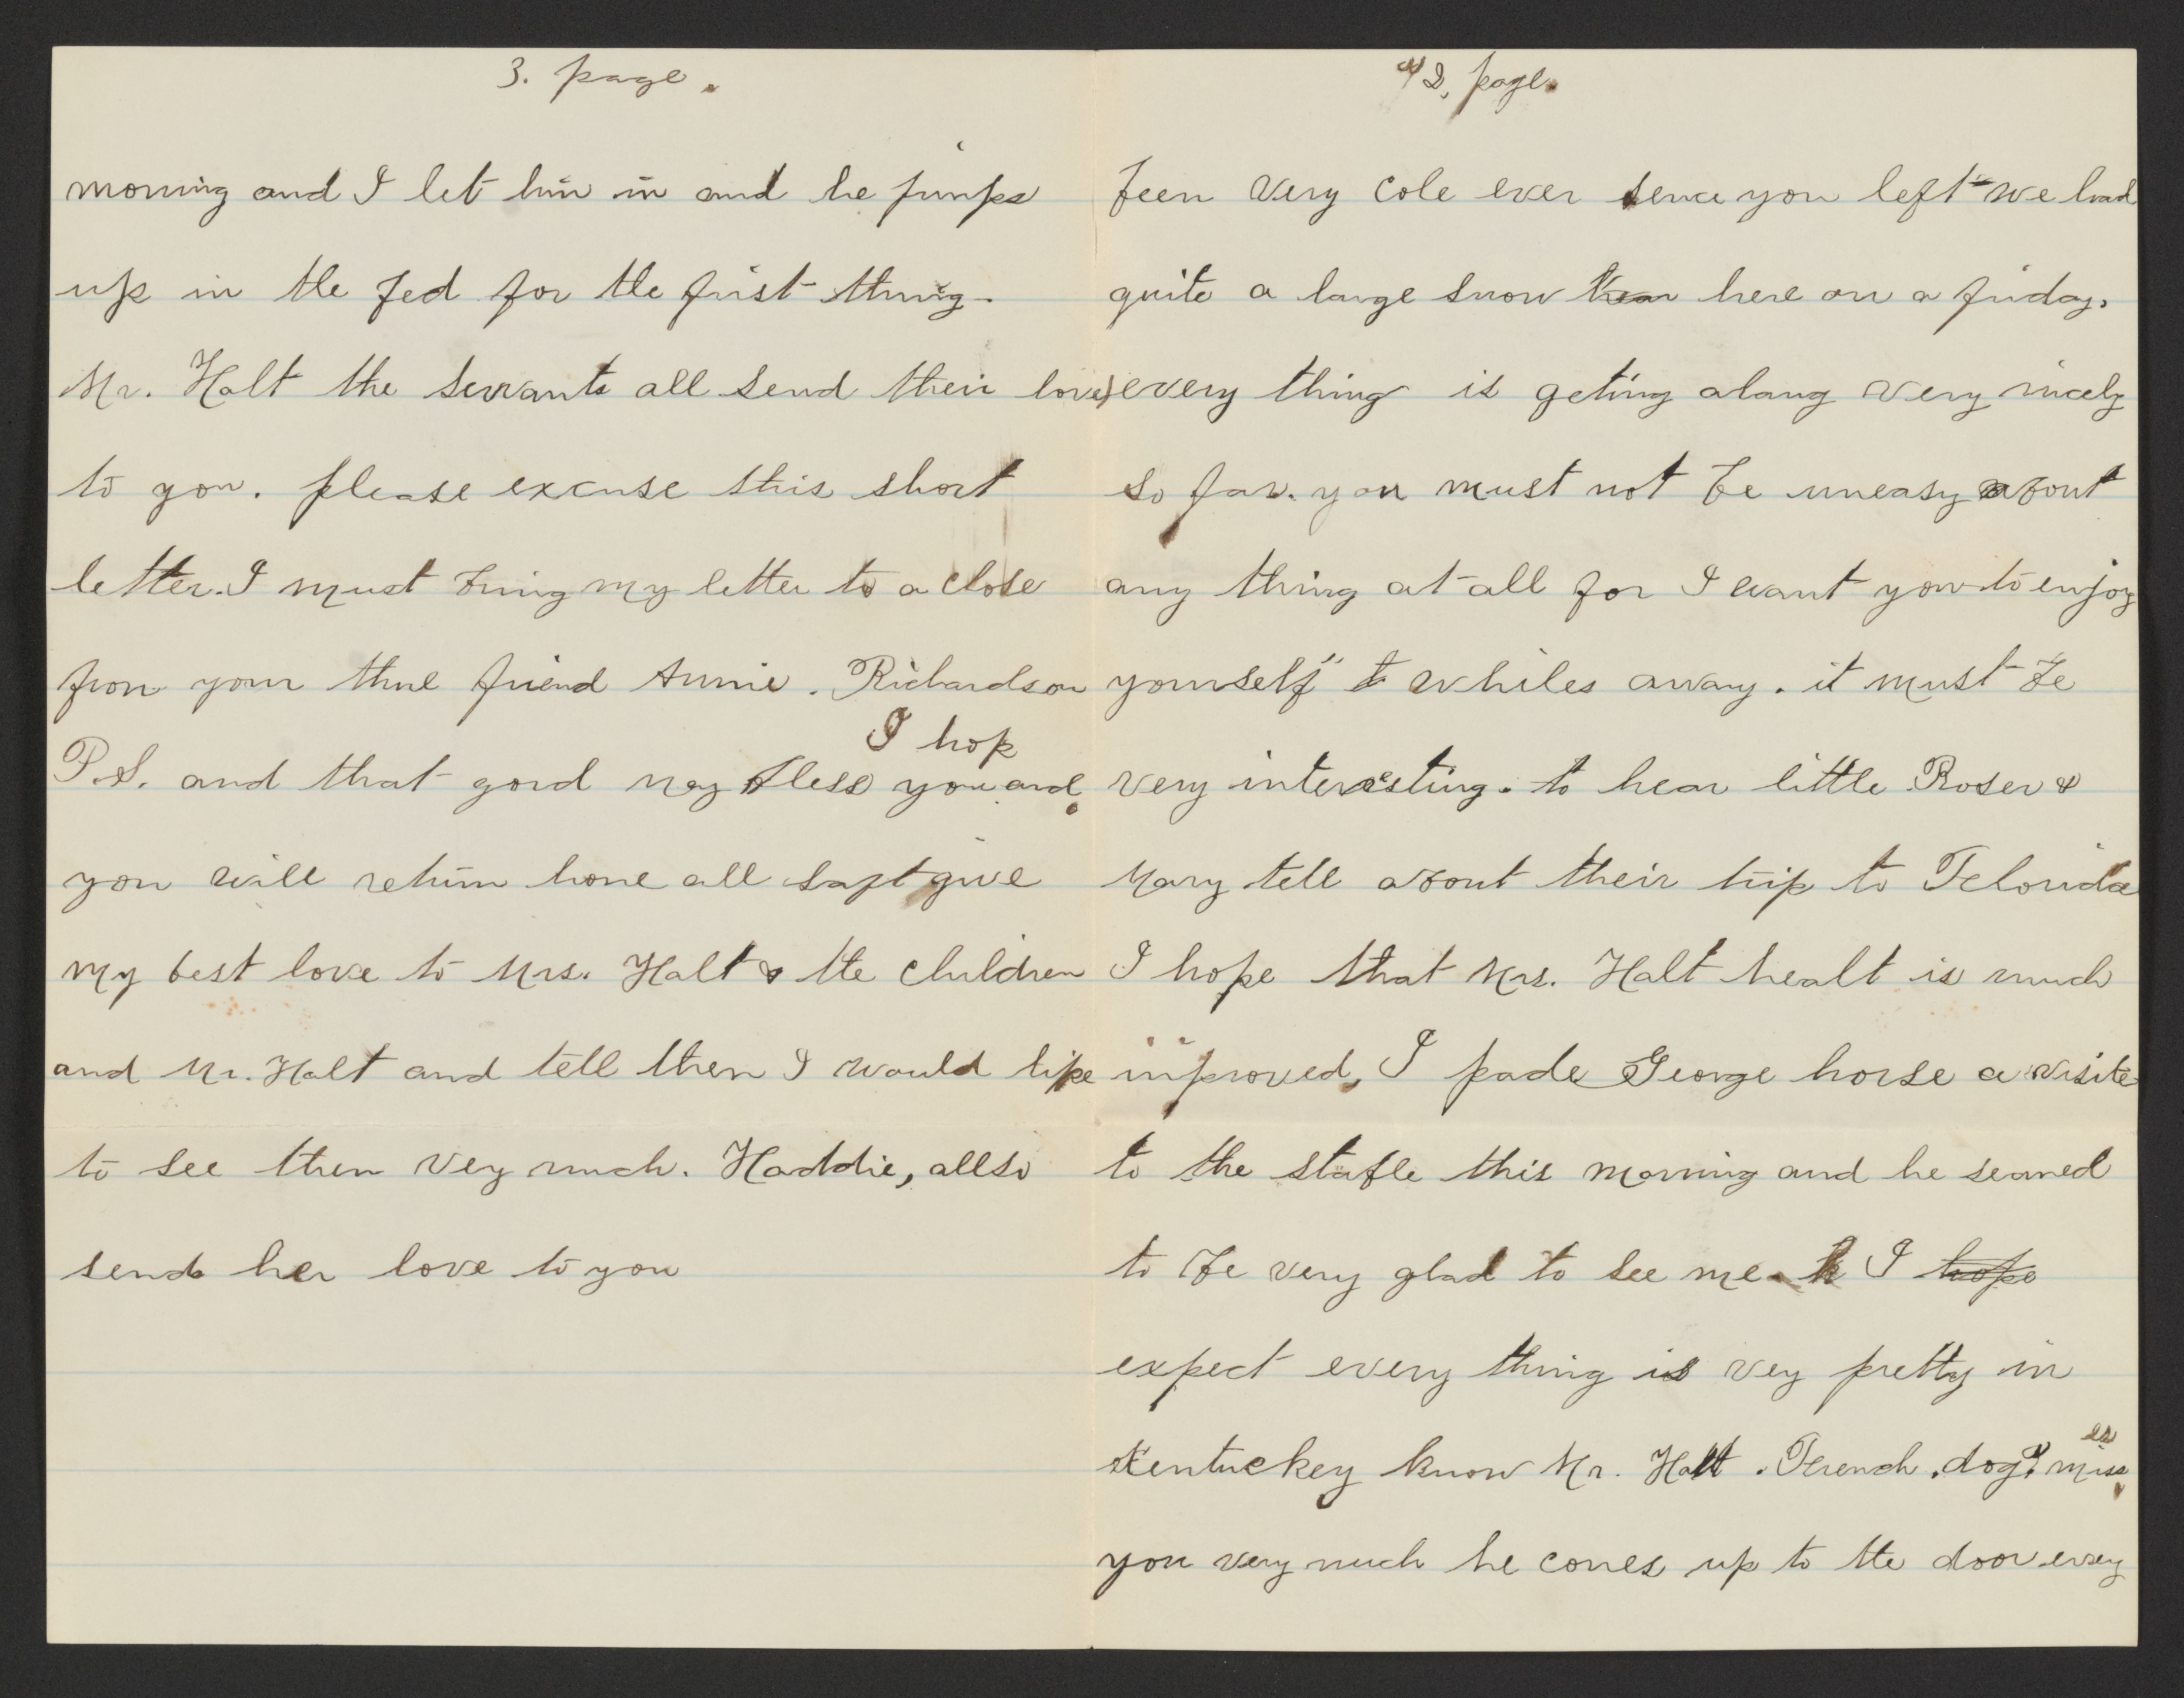 2. page.
been very cole ever sence you left we had
quite a large snow hear here on a friday.
every thing is geting along very nicely
so far. you must not be uneasy about
any thing at all for I want you to enjoy
yourself whiles away. it must be
very interesting. to hear little Roser &
Mary tell about their trip to Felorida
I hope that Mrs. Halt healt is much
improved, I pade George horse a visite
to the stable this morning and he seamed
to be very glad to see me. h I hope
expect every thing is vey pretty in
Kentuckey know Mr. Halt. Ferench. dog. misses
you very much he comes up to the door evey
3. page.
morning and I let him in and he jumps
up in the bed for the first thing.
Mr. Halt the servants all send their love
to you. please excuse this short
letter. I must bring my letter to a close
from your thrue friend Annie. Richardson
I hop
P.S. and that gord may bless you and
you will return home all saft give
my best love to Mrs. Halt & the children
and Mr. Halt and tell them I would like
to see them vey much. Haddie, allso
send her love to you